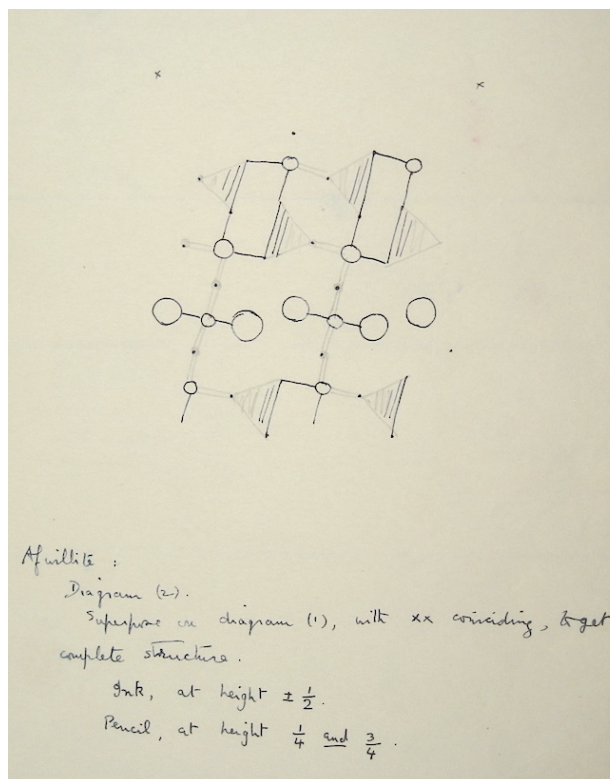 x x
Afwillite :
Diagram (2).
Superpose on diagram (1), with xx coinciding, to get
complete structure.
Ink, at height ± 1/2.
Pencil, at height 1/4 and 3/4.